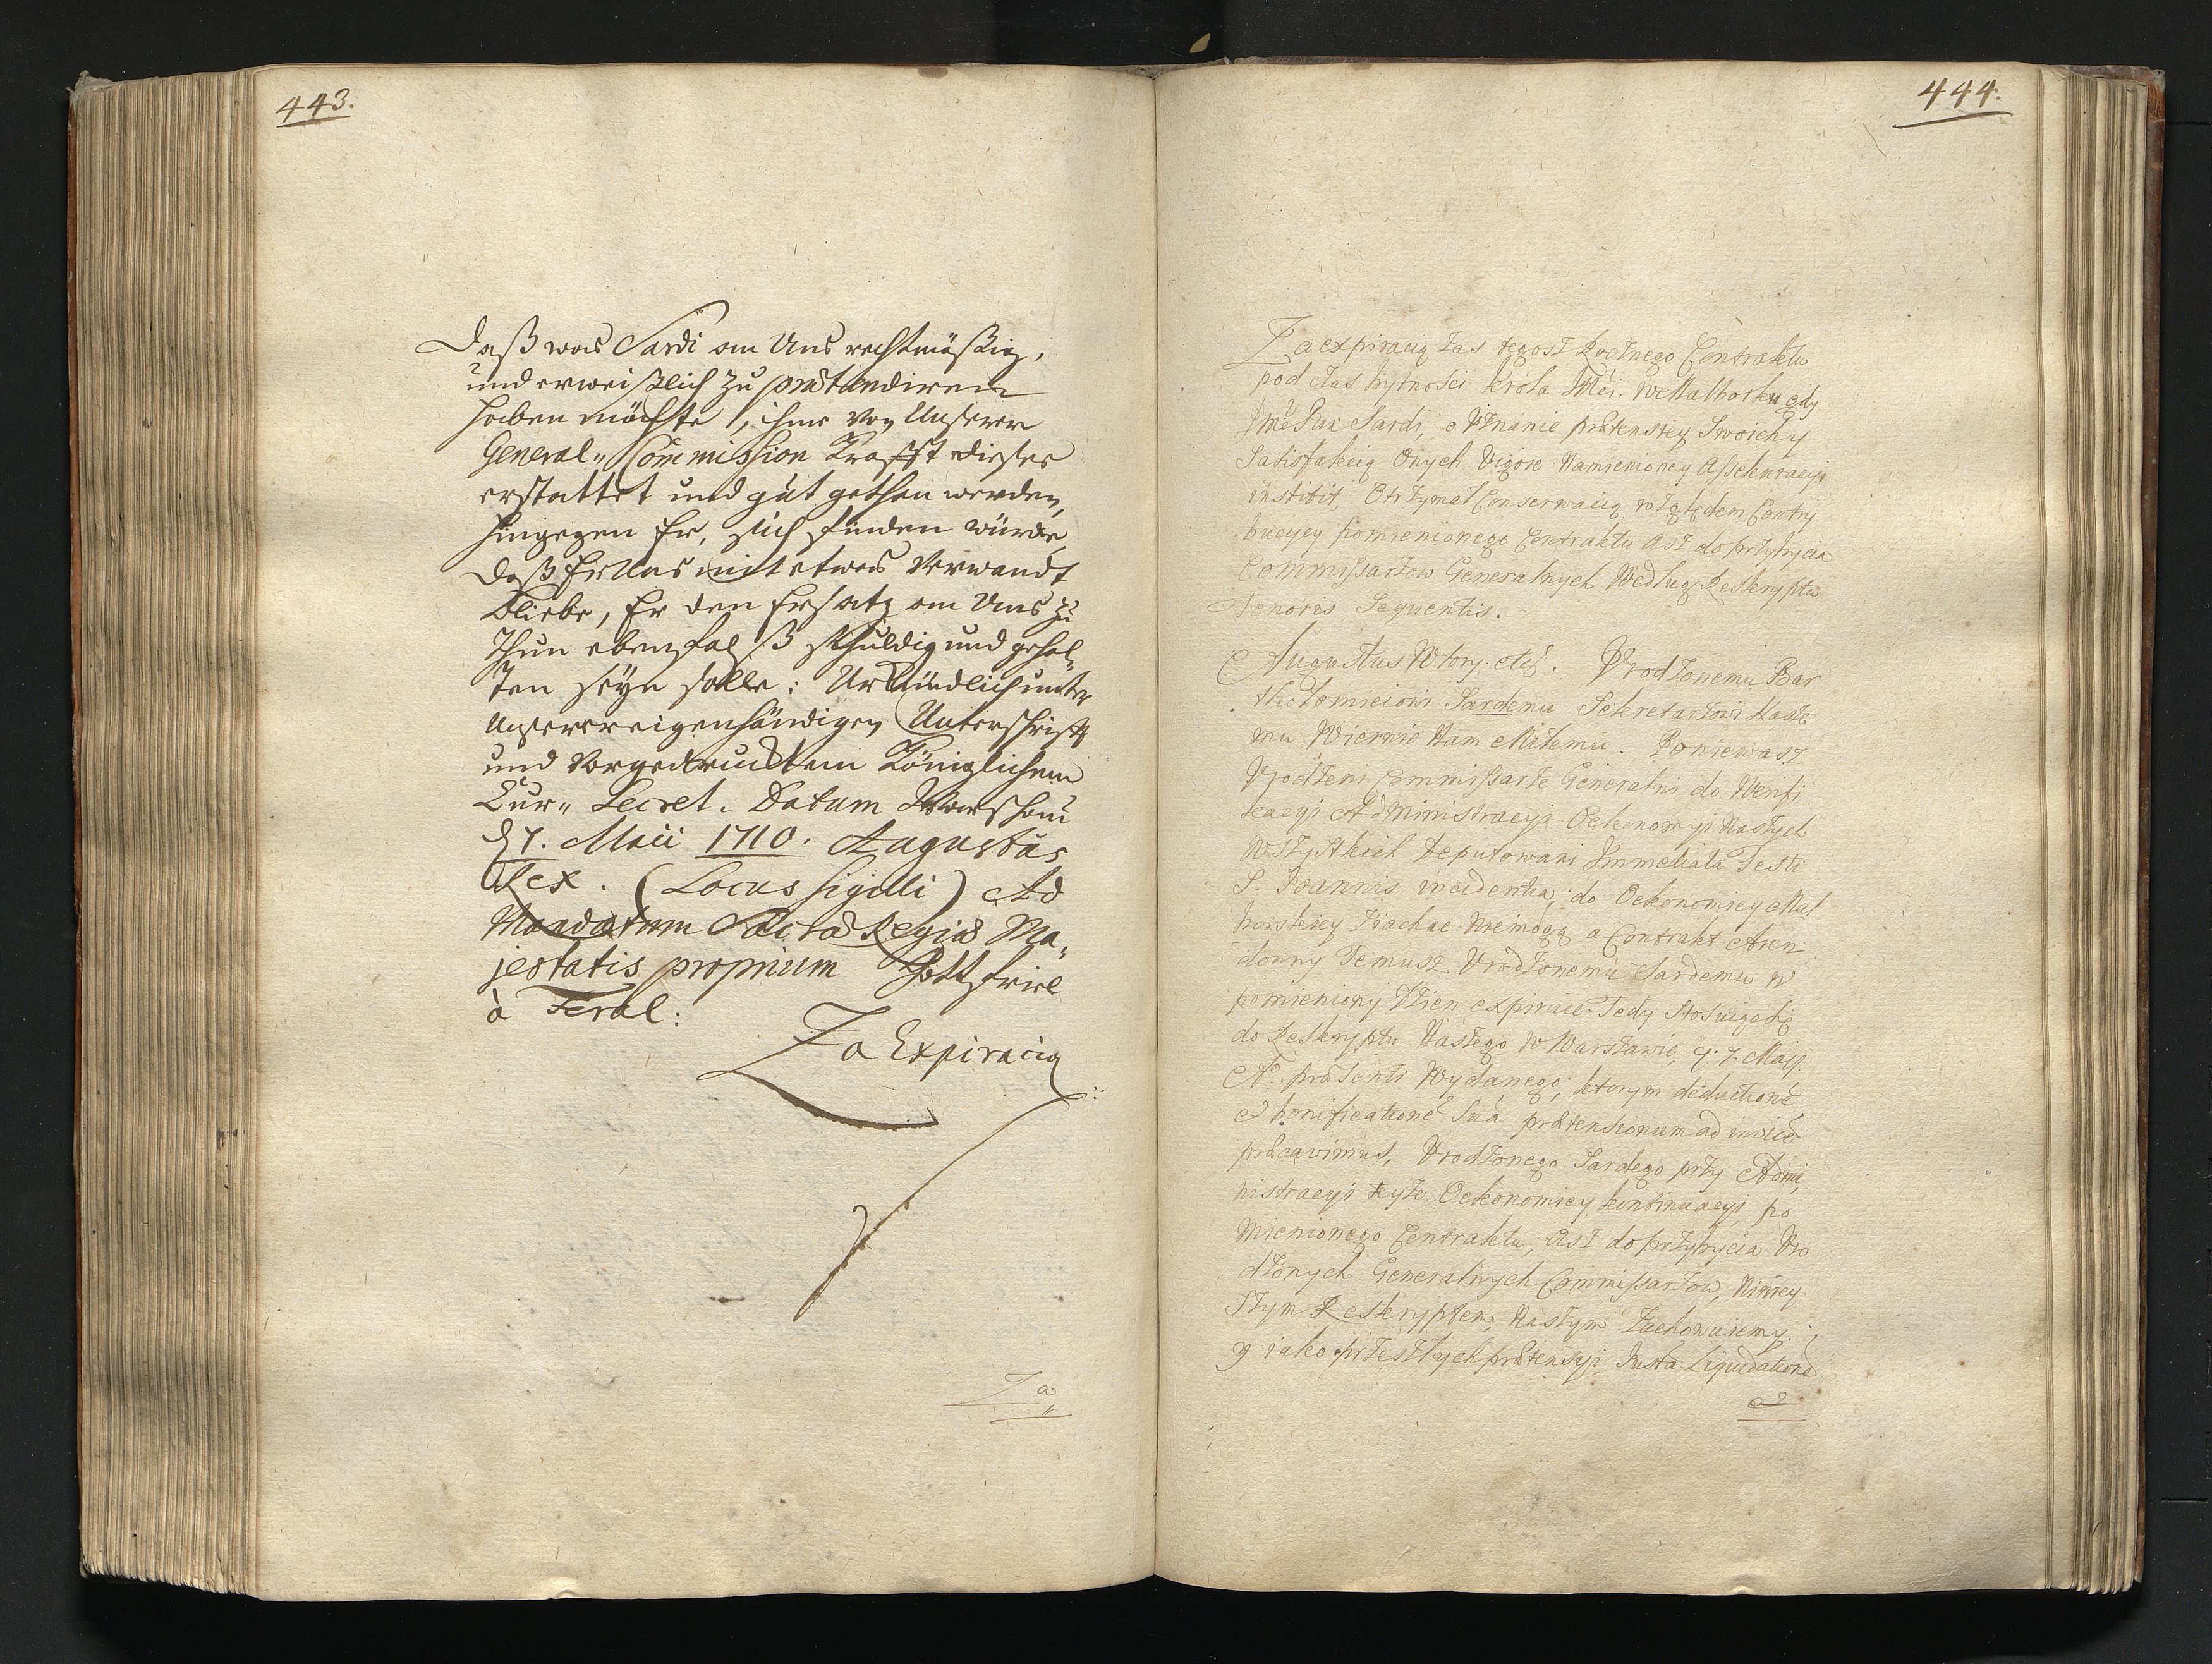 443.
Daß was Sardi an Uns rechtmäßig,
und erweißlich zu prætendiren
haben möchte, ihme von Unserer
General„ Commission Krafft dieses
erstattet und gut gethan werden,
hingegen Er, sich finden würde,
daß Er Uns mit etwas verwandt
bliebe, Er den Ersatz an Uns zu
Thun ebenfalß schuldig und gehal„
ten seyn solle: Urkundlich unter
Unserer eigenhändigen Unterschrifft
und vorgedrucktem Königlichem
Cur„ Secret. Datum Warschau
d 7. Maii 1710. Augustus
Rex. (Locus sigilli) Ad
Mandatum Sacræ Regiæ Ma„
jestatis proprium Gottfried
à
Za Expiracią
Za
444.
Za expiracyą zas tegosz Rocznego Contraktu
pod czas bytnosci krola Mci. w Malborku gdy
Jmć Pan Sardi, o Uznanie prætensyey Swoichy
Satisfakcią Onych Vigore Namienioney Assekuracyi
institit, Otrzymał Conserwacią względem Conty
nuacyey pomienionego Contraktu asz do przybycia
Commissarzow Generalnych Według Reskryptu
Tenoris Sequentis.
Augustus Wtory. etc. Urodzonemu Bar
thołomieiowi Sardemu Sekretarzowi Nasze
mu Wiernie Nam Miłemu. Poniewasz
Urodzeni Commissarze Generalni do Werifi
kacyi Administracyi Oekonomyi Naszych
Wszystkich Deputowani Immediatà Festi
S. Joannis incidentia, do Oekonomiey Mal
borskiey Ziachac Niemogą a Contrakt Aren
downy Temusz Urodzonemu Sardemu w
pomieniony Dzien expiruie. Tedy Stosuiąc Się
do Reskryptu Naszego w Warszawie, 7. Maji.
Aº præsenti Wydanego, ktorym deductionē
et bonificationē Suâ prætensionum ad invicē
præcavimus, Urodzonego Sardego przy Admi„
nistracyi teyże Oekonomiey kontinuacyi po
Mienionego Contraktu, asz do przybycia Uro
dzonych Generalnych Commissarzow, Niniey
szym Reskryptem Naszym Zachowuiemy.
y iako przeszłych prætensyi Justa Liquidatione